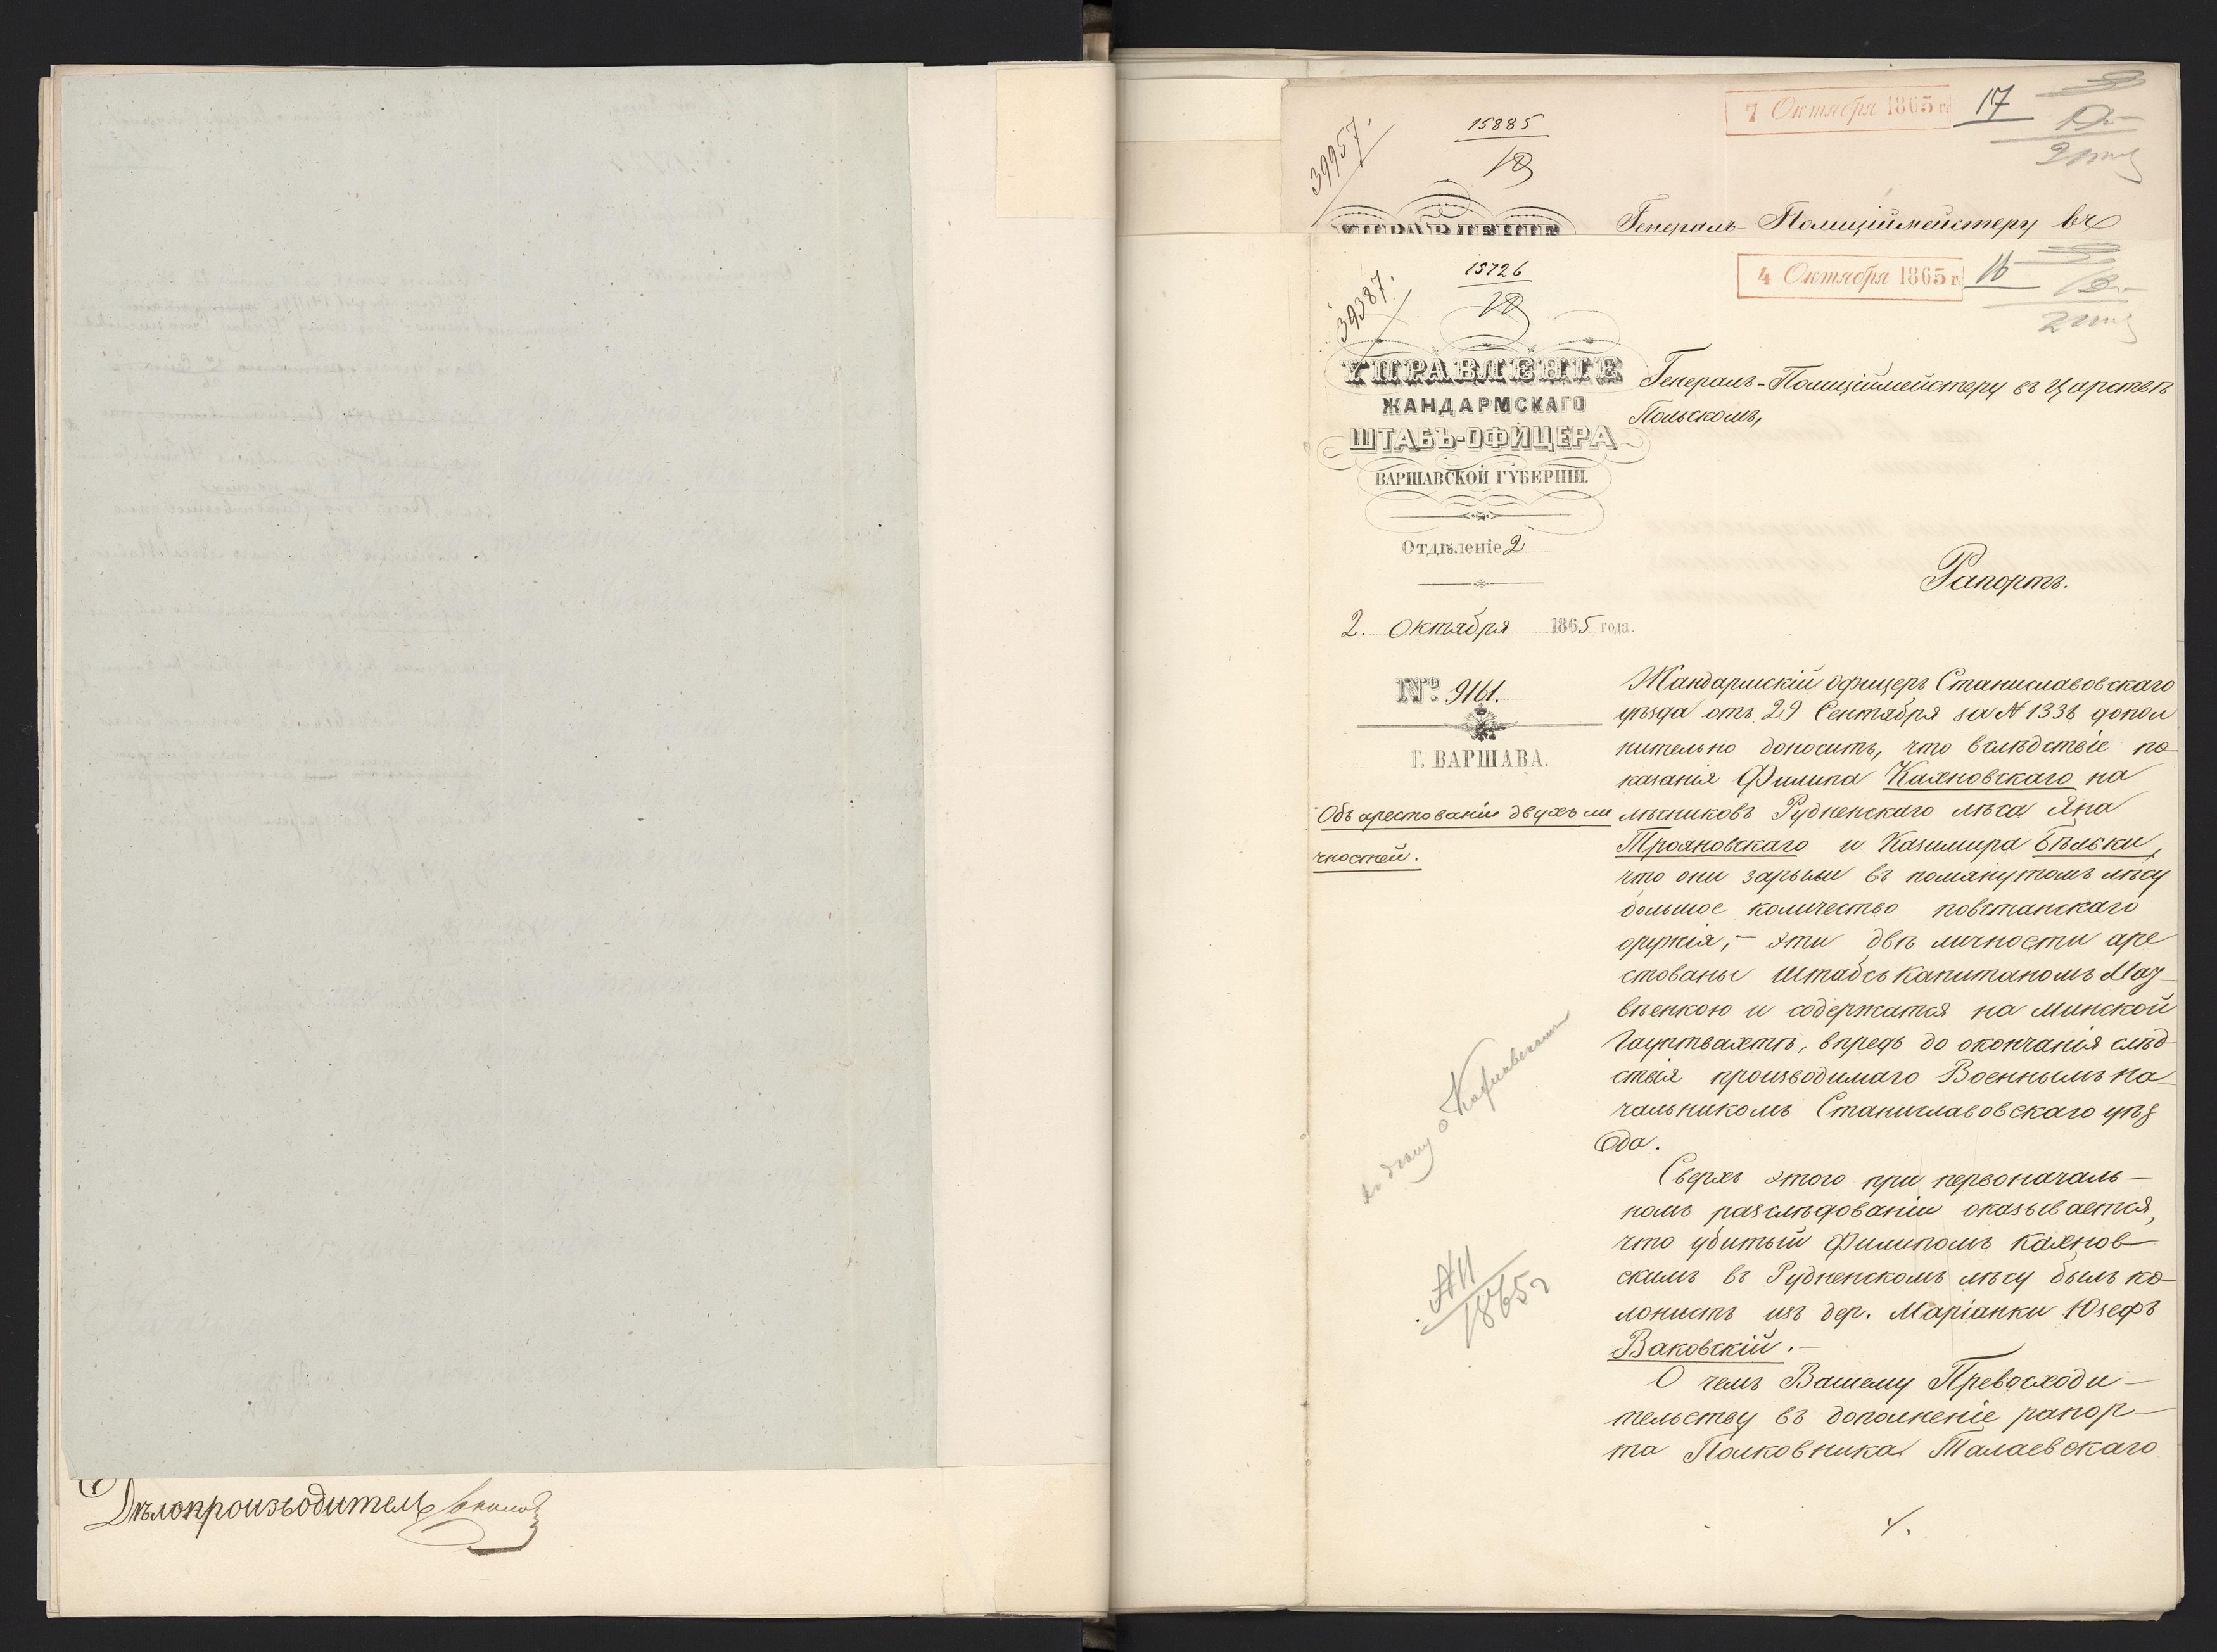 Дѣлопроизводитель
7 Октября 1865 г. 17
39957.
15885
Генералъ-Полиціймейстеру въ
УПРАВЛЕНІЕ
4 Октября 1865 г. 16
39387.
15726
УПРАВЛЕНІЕ
ЖАНДАРМСКАГО
ШТАБЪ-ОФИЦЕРА
ВАРШАВСКОЙ ГУБЕРНІИ.
Отдѣленіе 2
2. Октября 1865 года.
№ 9161.
Г. ВАРШАВА.
Объ арестованіи двухъ ли
чностей.
къ дѣлу о
№ 11
1865 г
Генералъ-Полиціймейстеру въ Царствѣ
Польскомъ,
Рапортъ.
Жандармскій офицеръ Станиславовскаго
уѣзда отъ 29 Сентября за № 1336 допол
нительно доноситъ, что вслѣдствіе по-
казанія Филипа Каяновскаго на
лѣсниковъ Рудненскаго лѣса Яна
Трояновскаго и Казимира Бѣльки,
что они зарыли въ помянутомъ лѣсу
большое количество повстанскаго
оружія, – эти двѣ личности аре
стованы Штабсъ Капитаномъ Мат-
вѣенкою и содержатся на Минской
Гауптвахтѣ, впредь до окончанія слѣд-
ствія производимаго Военнымъ На-
чальникомъ Станиславовскаго уѣз
да.
Сверхъ этого при первоначаль-
номъ разслѣдованіи оказывается,
что убитый Филипомъ Каянов-
скимъ въ Рудненскомъ лѣсу былъ ко-
лонистъ изъ дер. Маріанки Юзефъ
Ваковскій. –
О чемъ Вашему Превосходи-
тельству въ дополненіе рапор-
та Полковника Талаевскаго